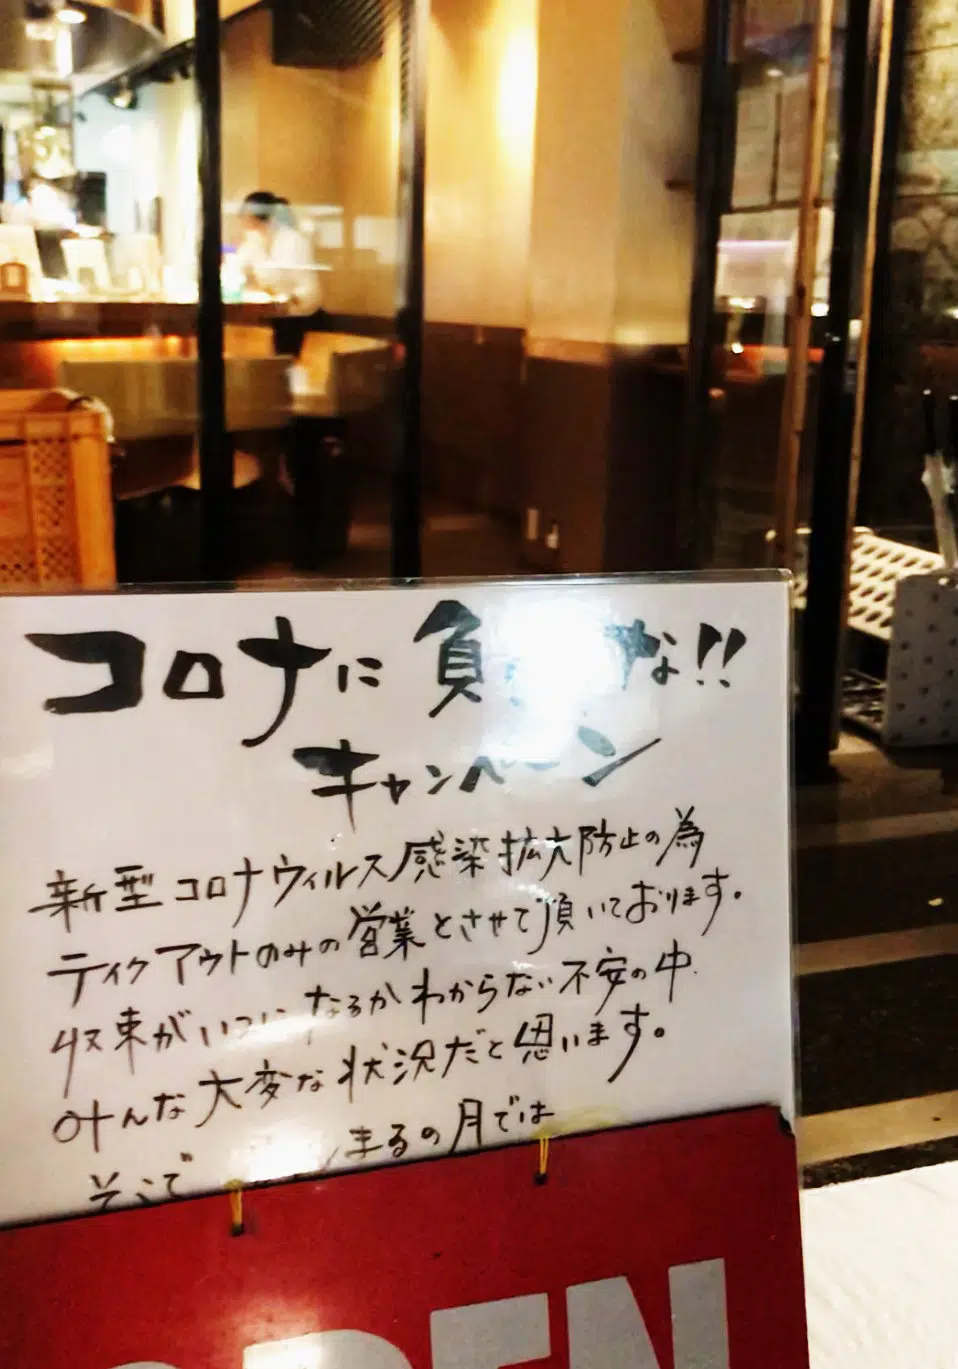 コロナに負 な!!
キャンペーン
新型コロナウィルス感染拡大防止の為
テイクアウトのみの営業とさせて頂いております。
収束がいつになるかわからない不安の中
みんな大変な状況だと思います。
そこで まるの月では
OPEN